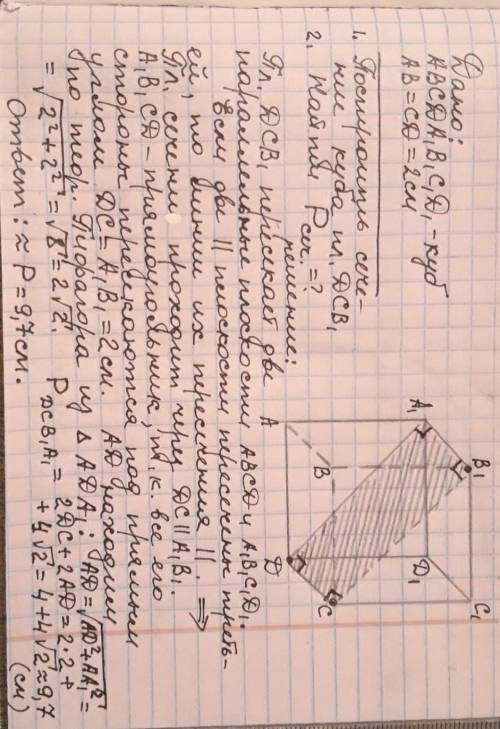 Дано:
ABCDA₁B₁C₁D₁ - куб
AB = CD = 2см
1. Построить сече-
ние куба пл. DCB₁
2. Найти Pсеч. = ?
решение:
Пл. DCB₁ пересекает две
параллельные плоскости ABCD и A₁B₁C₁D₁.
Если две || плоскости пересечены треть-
ей, то линии их пересечения ||. ⟹
Пл. сечения проходит через DC || A₁B₁.
A₁B₁CD - прямоугольник, т.к. все его
стороны пересекаются под прямым
углом. DC = A₁B₁ = 2см. AD находим
по теор. Пифагора из △ADA₁: AD = √AD² + AA₁² =
= √2² + 2² = √8 = 2√2. P DCB₁A₁ = 2DC + 2AD = 2·2 +
+ 4√2 = 4 + 4√2 ≈ 9,7
(см)
Ответ: ≈ P = 9,7см.
A₁
B₁
C₁
D₁
A
B
C
D